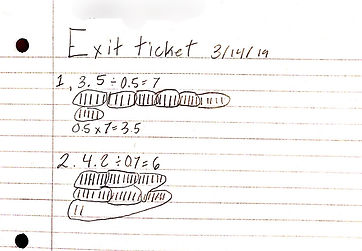 Exit ticket 3/14/19
1. 3.5÷0.5=7
0.5x7=3.5
2. 4.2÷0.7=6